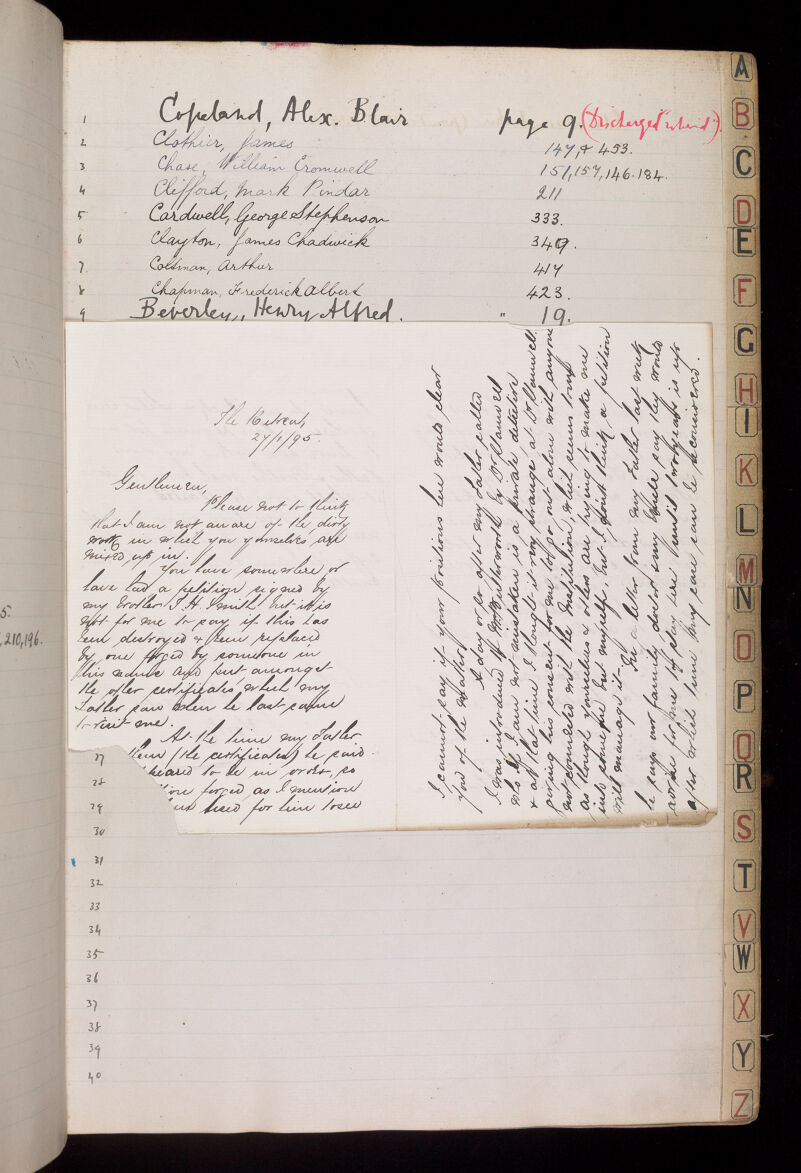 5.
,210,196.
1 Copeland, Alex. Blair page 9. (Discharged
2 Clothier, James 147, & 453.
3 Chase, William Cromwell 151, 157, 146. 184.
4 Clifford, Mark Pindar 211
5 Cardwell, George Stephenson 333.
6 Clayton, James Chadwick 349.
7 Coltman, Arthur 417
8 Chapman, Frederick Albert 423.
9 Beverley, Henry Alfred. " 19.
The Retreat
27/1/95.
Gentlemen,
Please not to think
that I am not aware of the dirty
work in which you yourselves are
mixed up in.
You have somewhere or
have had a petition signed by
my brother J. H. Smith but it is
not for me to say if this has
been destroyed & been replaced
by one forged by someone in
this and put amongst
the other certificates, which my
Father saw when he last came
to visit me.
At the time my Father
them (the certificates) he said
to be in order, so
forged, as I mention
used for him to see
I cannot say if your positions here would clear
you of the matter.
A day or so after my Father called
I was introduced to Mr Butterworth by Dr
who if I am not mistaken is a private detective
& at that time I thought it very strange at Dr
giving his consent for me to go out alone with anyone
not connected with the Institution, which seems
as though yourselves & others are trying to make me
into someone but myself, but I don't think a petition
will manage it.
In a letter from my Father last week
he says our family doctor & my say they would
advise for me to stay here until two years is up
after which time my case can be reconsidered.
27
28
29
30
31
32
33
34
35
36
37
38
39
40
A
B
C
D
E
F
G
H
I
K
L
M
N
O
P
Q
R
S
T
V
W
X
Y
Z